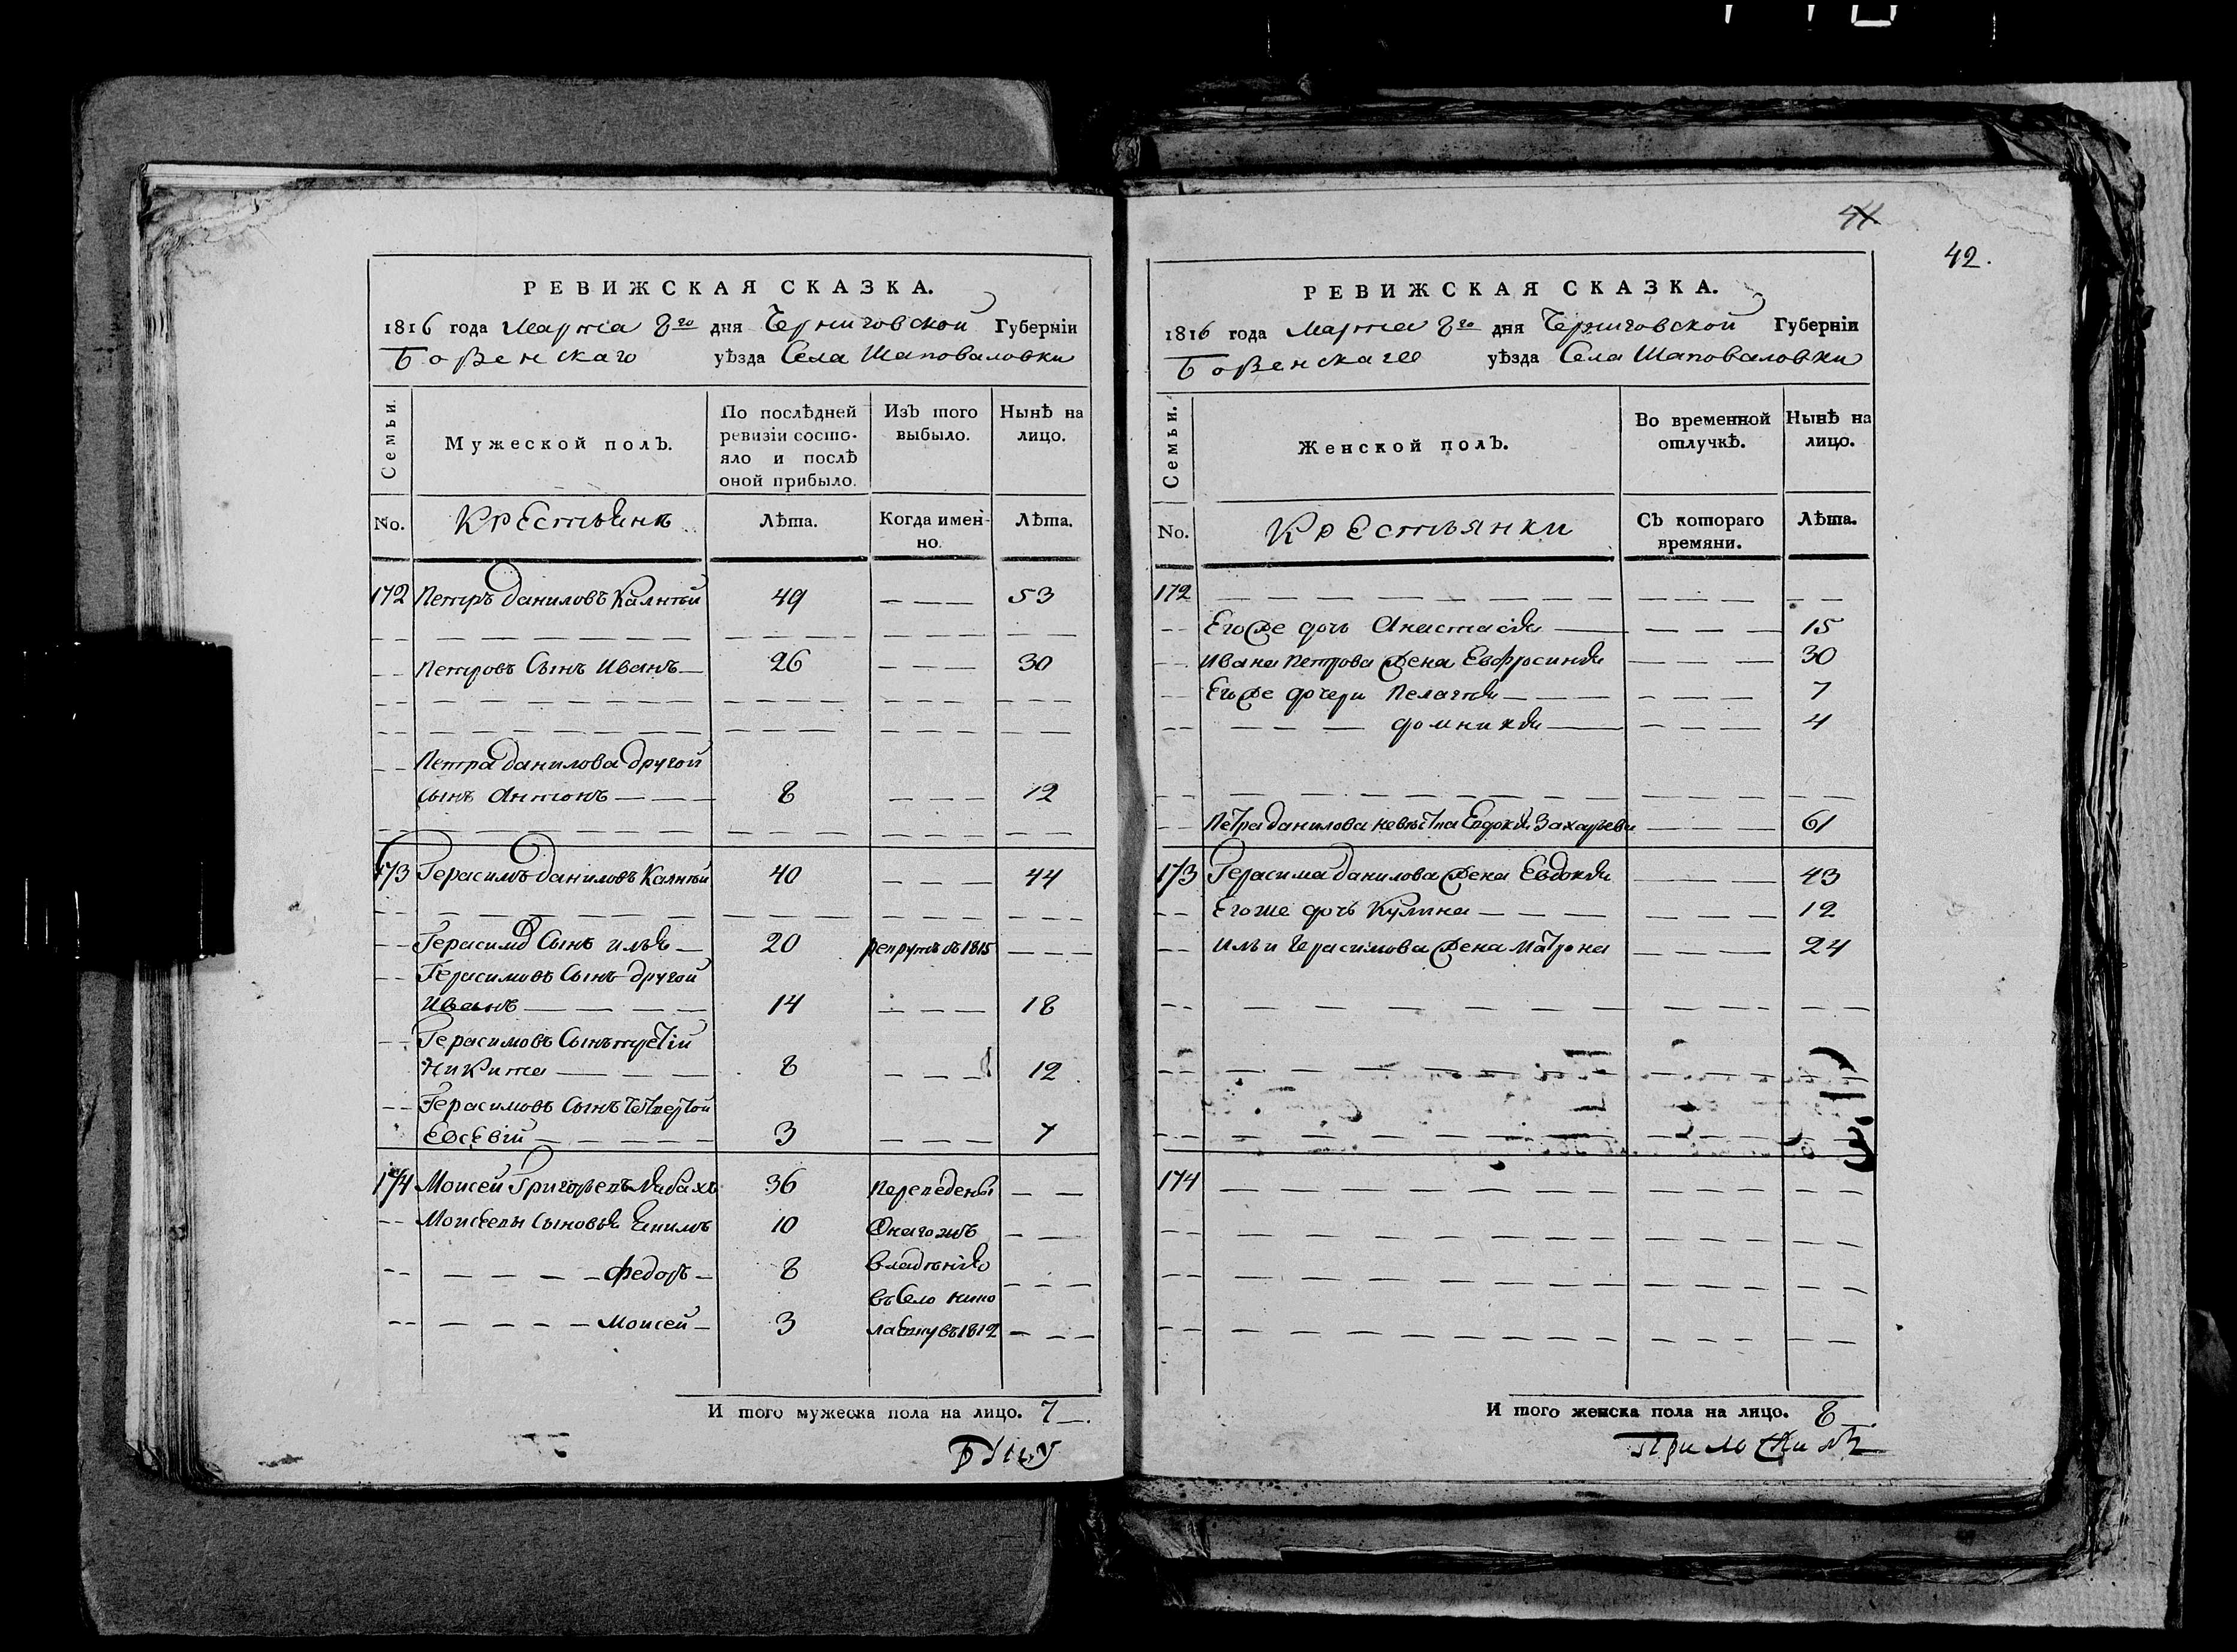 РЕВИЖСКАЯ СКАЗКА.
1816 года Марта 8го дня Черниговской Губернїи
Борзенскаго уѣзда Села Шаповаловки
Семьи.
Мужеской полъ.
По послѣдней
ревизїи состо-
яло и послѣ
оной прибыло.
Изъ того
выбыло.
Нынѣ на
лицо.
No.
Крестьянъ
Лѣта.
Когда имен-
но.
Лѣта.
172 Петръ Даниловъ 49 53
Петровъ Сынъ Иванъ 26 30
Петра Данилова другой
сынъ Антонъ 8 12
173 Герасимъ Даниловъ 40 44
Сынъ Илья 20 в 1815
Герасимовъ Сынъ другой
Иванъ 14 18
Герасимовъ Сынъ третїй
Никита 8 12
Герасимовъ Сынъ четвертой
Евсевїй 3 7
174 Моисей 36 Переведены
Сыновья 10
Федоръ 8 владѣнїя
въ Село
Моисей 3 въ 1812
И того мужеска пола на лицо. 7
41
42.
РЕВИЖСКАЯ СКАЗКА.
1816 года Марта 8го дня Черниговской Губернїи
Борзенскаго уѣзда Села Шаповаловки
Семьи.
Женской полъ.
Во временной
отлучкѣ.
Нынѣ на
лицо.
No.
Крестьянки
Съ котораго
времяни.
Лѣта.
172
Его же дочь Анастасїя 15
Ивана Петрова жена Евфросинїя 30
Его же дочери Пелагїя 7
Домникїя 4
Петра Данилова невѣстка Евдокїя 61
173 Герасима Данилова жена Евдокїя 43
Его же дочь Кулина 12
Ильи Герасимова жена Матрона 24
174
И того женска пола на лицо. 8
Приложилъ